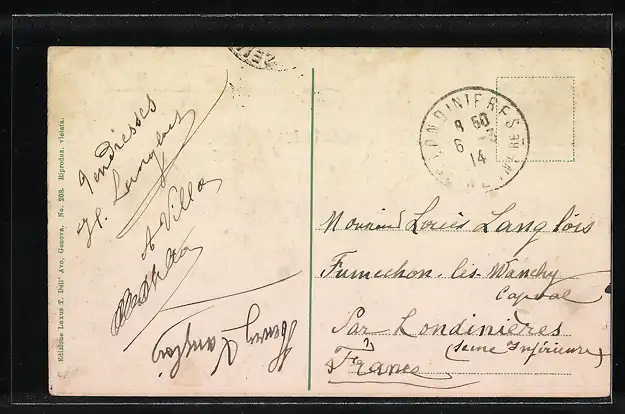 Edizione Luxus T. Dell' Avo, Genova. No. 208. Riprodus. vietata.
Tendresses
H. Langlois
A Villa
Henry Langlois
LONDINIERES
8 50
6 3
14
INF RE
Monsieur Louis Langlois
Fumechon-lès-Wanchy
Capval
Par Londinières
(Seine Inférieure)
France